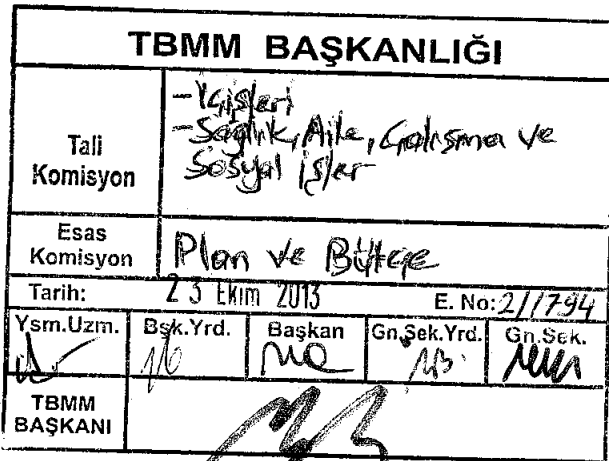 TBMM BAŞKANLIĞI
Tali Komisyon
-İçişleri
-Sağlık, Aile, Çalışma ve
Sosyal İşler
Esas Komisyon
Plan ve Bütçe
Tarih: 23 Ekim 2013 E. No: 2/1794
Ysm.Uzm. Bşk.Yrd. Başkan Gn.Sek.Yrd. Gn.Sek.
TBMM
BAŞKANI